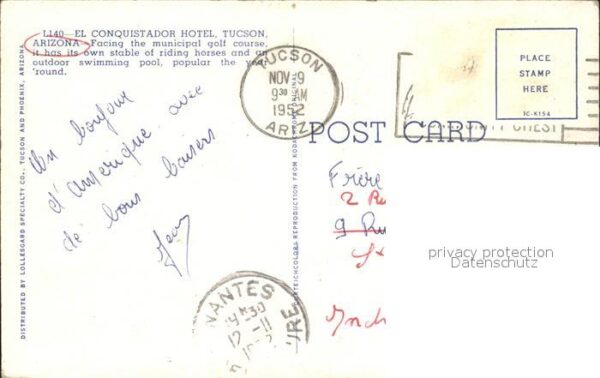 L140—EL CONQUISTADOR HOTEL, TUCSON,
ARIZONA—Facing the municipal golf course,
it has its own stable of riding horses and an
outdoor swimming pool, popular the year
'round.
DISTRIBUTED BY LOLLESGARD SPECIALTY CO., TUCSON AND PHOENIX, ARIZONA
Un bonjour
d'amérique avec
de bons baisers
Jean
TUCSON
NOV 9
9 30 AM
1952
ARIZ
PLACE
STAMP
HERE
1C-K154
CHEST
POST CARD
REPRODUCTION FROM KODACHROME ORIGINAL
Frère
2
9
privacy protection
Datenschutz
NANTES
30
12-11